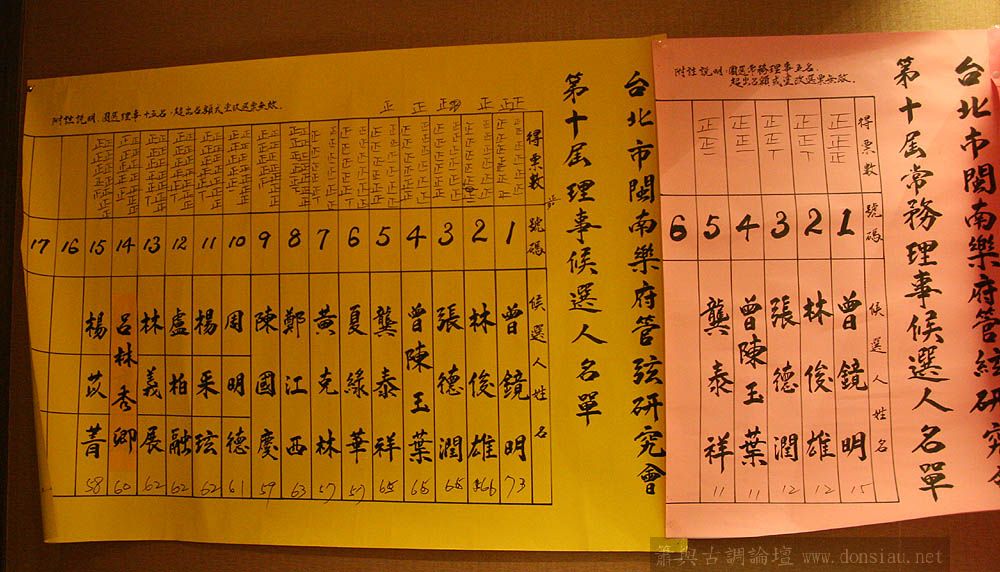 台北市閩南樂府管弦研究會
第十屆常務理事候選人名單
附註說明:圈選常務理事五名,
超出名額或塗改選票無效。
得票數
號碼
候選人姓名
1 曾鏡明 15
2 林俊雄 12
3 張德潤 12
4 曾陳玉葉 11
5 龔泰祥 11
6
台北市閩南樂府管弦研究會
第十屆理事候選人名單
附註說明:圈選理事十五名,超出名額或塗改選票無效。
得票數
號碼
候選人姓名
1 曾鏡明 73
2 林俊雄 66
3 張德潤 65
4 曾陳玉葉 65
5 龔泰祥 65
6 夏綠華 57
7 黃克林 57
8 鄭江西 63
9 陳國慶 59
10 周明德 61
11 楊采玹 62
12 盧柏融 62
13 林義展 62
14 呂林秀卿 60
15 楊苡菁 58
16
17
簫與古調論壇 www.donsiau.net